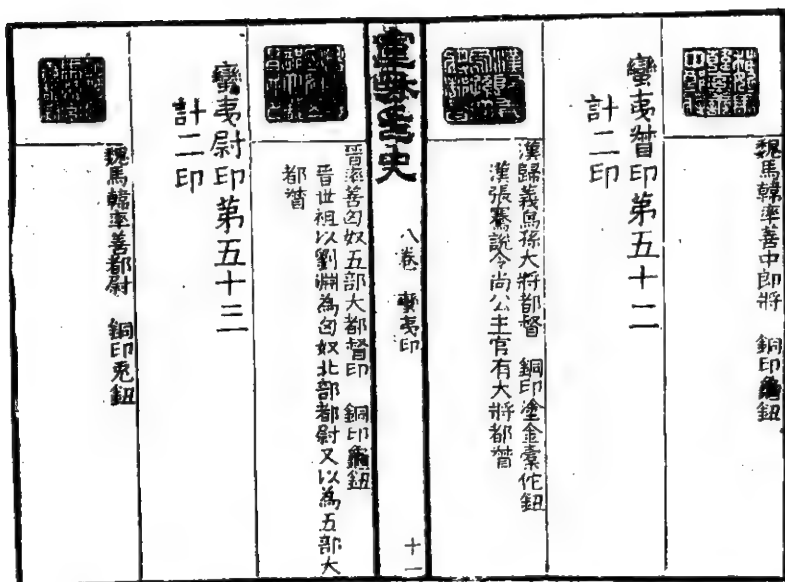 魏馬韓率善中郎將　銅印鈕
蠻夷督印第五十二
計二印
漢歸義烏孫大將都督　銅印塗金橐佗鈕
漢張騫說令尚公主官有大將都督
宣龢印史
八卷　蠻夷印
十一
晉率善匈奴五部大都督印　銅印龜鈕
晉世祖以劉淵為匈奴北部都尉又以為五部大
都督
蠻夷尉印第五十三
計二印
魏馬韓率善都尉　銅印兎鈕